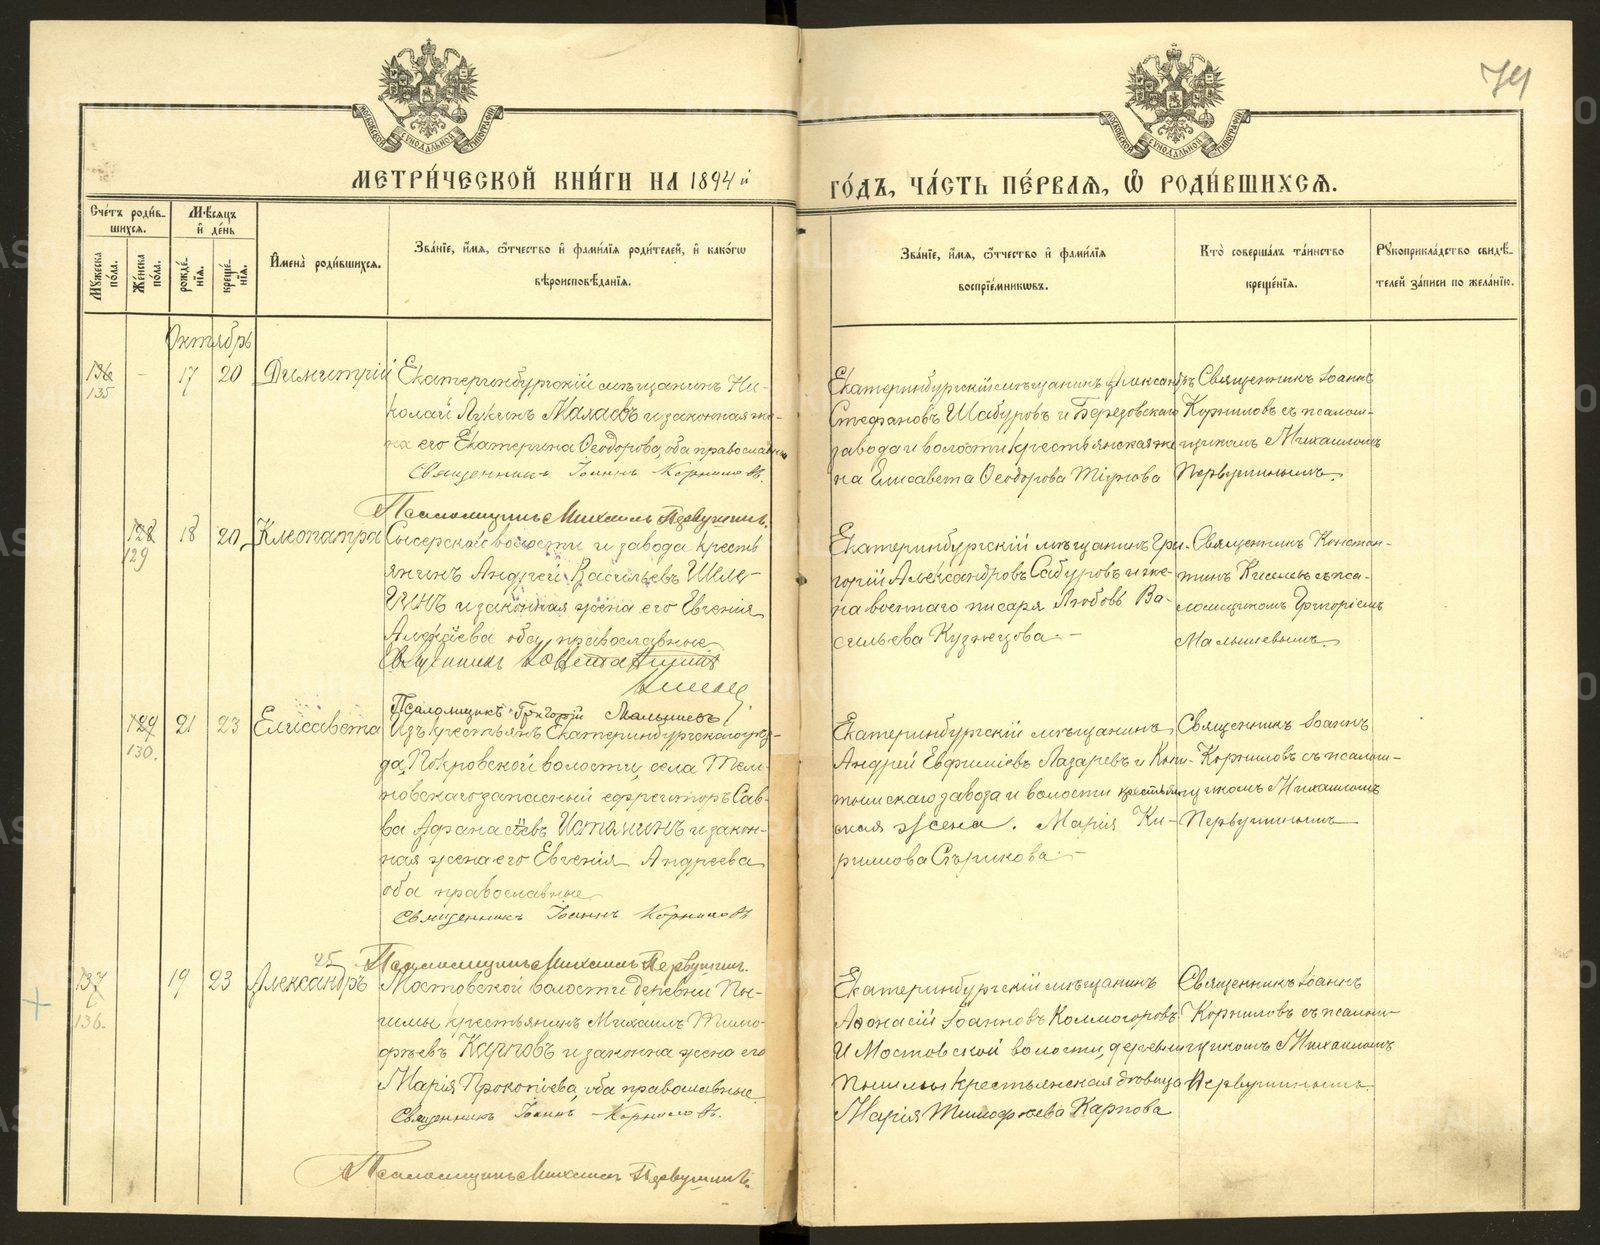 74
МЕТРИ́ЧЕСКОЙ КНИ́ГИ НА 1894 й
ГО́ДЪ, ЧА́СТЬ ПЕ́РВАЯ, Ѽ РОДИ́ВШИХСЯ.
Сче́тъ роди́в-
шихся.
Мѣ́сяцъ
и҆ де́нь
Му́жеска
по́ла.
Же́нска
по́ла.
рожде́-
нїя.
креще́-
нїя.
И҆мена̀ роди́вшихся.
Зва́нїе, и҆́мя, ѻ҆́тчество и҆ фами́лїя роди́телей, и҆ како́гѡ
вѣроисповѣ́данїя.
Зва́нїе, и҆́мя, ѻ҆́тчество и҆ фами́лїя
воспрїе́мникѡвъ.
Кто̀ соверша́лъ та́инство
креще́нїя.
Рꙋкоприкла́дство свидѣ́-
телей за́писи по жела́нїю.
Октябрь
136
135
-
17
20
Димитрій
Екатеринбургскій мѣщанинъ Ни-
колай Лукинъ Малаевъ и законная же-
на его Екатерина Ѳеодорова, оба православные
Священникъ Іоаннъ Корниловъ.
Псаломщикъ Михаилъ Первушинъ.
Екатеринбургскій мѣщанинъ Александръ
Стефановъ Шабуровъ и Березовскаго
завода и волости крестьянская же
на Елисавета Ѳеодорова Тіунова
Священникъ Іоаннъ
Корниловъ съ псалом-
щикомъ Михаиломъ
Первушинымъ.
128
129
18
20
Клеопатра
Сысерской волости и завода кресть
янинъ Андрей Васильевъ Шеле-
гинъ и законная жена его Евгенія
Алексіева оба православные
Священникъ Константинъ
Киселевъ
Псаломщикъ Григорій Малышевъ
Екатеринбургскій мѣщанинъ Гри-
горій Александровъ Сабуровъ и же-
на военнаго писаря Любовь Ва-
сильева Кузнецова. -
Священникъ Констан-
тинъ Киселевъ съ пса-
ломщикомъ Григоріемъ
Малышевымъ.
129
130.
21
23
Елисавета
Изъ крестьянъ Екатеринбургскаго уѣз-
да, Покровской волости, села Тем-
новскаго запасный ефрейторъ Сав-
ва Афанасіевъ Истоминъ и закон-
ная жена его Евгенія Андреева
оба православные
Священникъ Іоаннъ Корниловъ
Псаломщикъ Михаилъ Первушинъ.
Екатеринбургскій мѣщанинъ
Андрей Евфиміевъ Лазаревъ и Кыш-
тымскаго завода и волости крестьян
ская жена. Марія Ки-
риллова Старикова. -
Священникъ Іоаннъ
Корниловъ съ псалом-
щикомъ Михаиломъ
Первушинымъ
137
136.
19
23
25
Александръ
Мостовской волости деревни Пы-
шмы крестьянинъ Михаилъ Тимо-
фѣевъ Карповъ и законна жена его
Марія Прокопіева, оба православные
Священникъ Іоаннъ Корниловъ.
Псаломщикъ Михаилъ Первушинъ.
Екатеринбургскій мѣщанинъ
Аѳонасій Іоанновъ Колмогоровъ
и Мостовской волости, деревни
Пышмы крестьянская дѣвица
Марія Тимофѣева Карпова
Священникъ Іоаннъ
Корниловъ съ псалом-
щикомъ Михаиломъ
Первушинымъ.